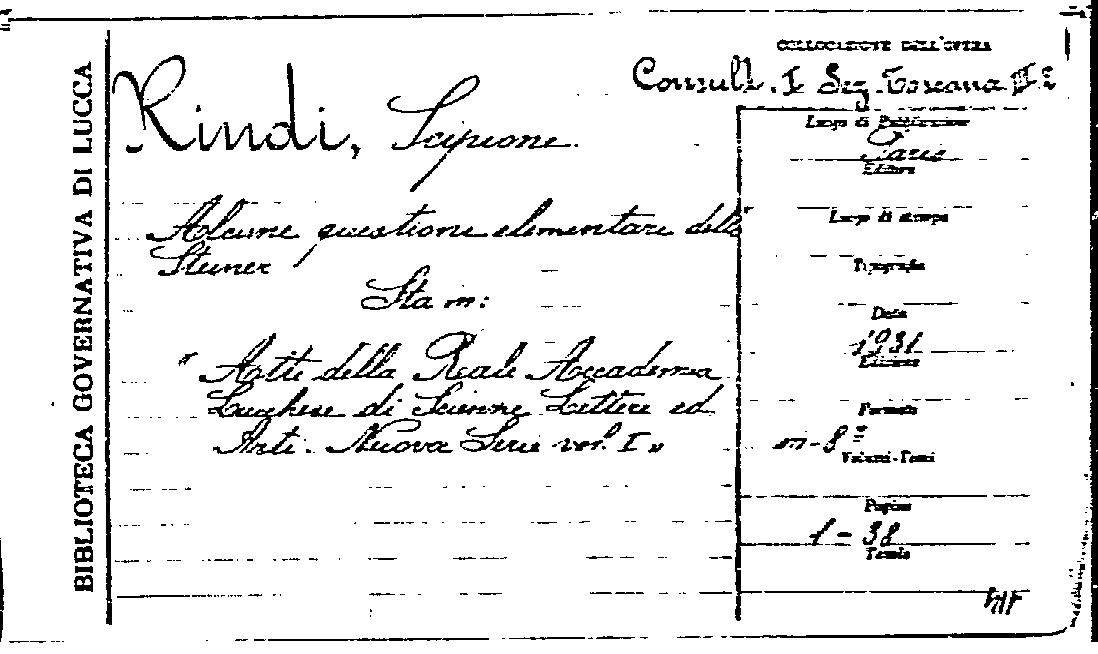 BIBLIOTECA GOVERNATIVA DI LUCCA
COLLOCAZIONE DELL'OPERA
Consult. I Sez. Toscana
Rindi, Scipione.
Alcune questione elementare dello
Steiner
Sta in:
" Atti della Reale Accademia
Lucchese di Scienze Lettere ed
Arti. Nuova Serie vol. I "
Luogo di Pubblicazione
Editore
Luogo di stampa
Tipografia
Data
1931
Edizione
Formato
in-8°
Volumi-Tomi
Pagine
1-38
Tavole